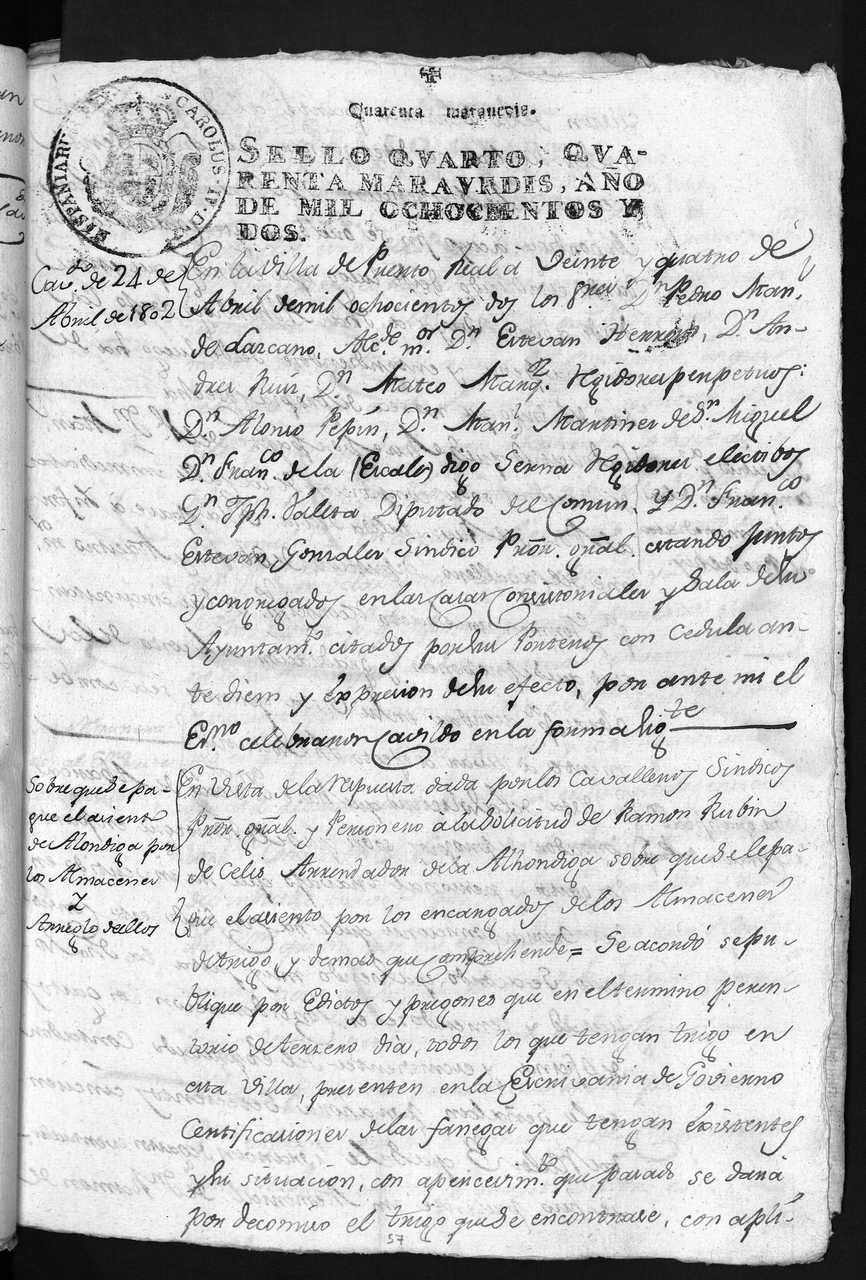 Quarenta maravedis.
SELLO QVARTO, QVA-
RENTA MARAVEDIS, AÑO
DE MIL OCHOCIENTOS Y
DOS.
HISPANIARUM
CAROLUS IV D G
Cav.do de 24 de
Abril de 1802
En la villa de Puerto Real a Veinte y quatro de
Abril de mil ochocientos dos los Sres. Dn Pedro Manl
de Lazcano, Alcde mor Dn Estevan Herrera, Dn An-
dres Ruiz, Dn Mateo Marqz Rexidores perpetuos:
Dn Alonso Pepín, Dn Manl Martinez de Sn Miguel
Dn Franco de la (Escale) digo Serna Rexidores electivos
Dn Jph. Valeta Diputado del Comun. Y Dn Franco
Estevan Gonzalez Sindico Prōr. gñal. estando juntos
y congregados en las Casas Consistoriales y Sala de su
Ayuntamto citados por su Porteros con Cedula an-
te diem y expresion de su efecto, por ante mi el
Esno celebraron Cavildo en la forma sigte
Sobre que se le pa-
gue el asiento
de Alondiga por
los Almacenes
Y
Arreglo de ellos
En vista de la respuesta dada por los Cavalleros Sindicos
Prōr. gñal. y Personero á la solicitud de Ramon Rubin
de Celis Arrendador de la Alhondiga sobre que se le pa-
gue el asiento por los encargados de los Almacenes
de trigo y demas que comprehende = Se acordó se pu-
blique por Edictos y pregones que en el termino peren-
torio de tercero dia, todos los que tengan trigo en
esta Villa, presenten en la Escrivania de Govierno
Certificaciones de las fanegas que tengan existentes
y su situacion, con apercevimto que pasado se dará
por decomiso el trigo que se encontrase, con apli-
57